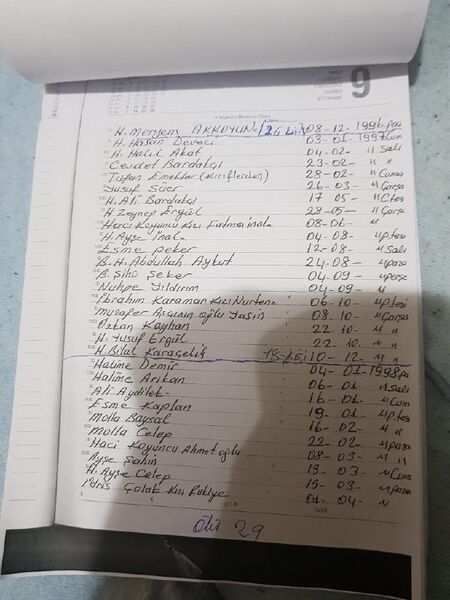 9
H. Meryem AKKOYUN [26 ki] 08-12-1996 paz
H. Hasan Deveci 03-01-1997 Cum
H. Halil Akat 04-02 " Salı
Cevdet Bardakçı 23-02 " "
Tufan Emektar (Kırıflerden) 28-02 " Cuma
Yusuf Süer 26-03 - " Çarşa
H. Ali Bardakçı 17 05 - " Ctes
H. Zeynep Ergül 28-05 - " Çarşa
Hacı Koyuncu Kızı Fatma inal 08-06 "
H. Ayşe İnal 04-08- " p.tesi
Esme Şeker 12-08- " Salı
B. H. Abdullah Aykut 24-08- " paza
B. Şıho Şeker 04-09- " perşe
Nuhpe Yıldırım 04-09- "
İbrahim Karaman Kızı Nurten 06-10- " p.tesi
Muzafer Aşçının oğlu Yasin 08-10- " Çarşa
Özkan Kayhan 22 10- " "
H. Yusuf Ergül 22 10- " "
H. Bilal Karaçelik 18 kişi 10-12- " "
Halime Demir 04-01-1998 pa
Halime Arıkan 06-01- " Salı
Ali Aydilek 16-01- " Cum
Esme Kaplan 19-01- " p.tes
Molla Baysal 16-02- " "
Molla Celep 22-02- " paza
Hacı Koyuncu Ahmet oğlu 08-03- " "
Ayşe Şahin 13-03- " Cum
H. Ayşe Celep 15-03- " Paza
İdris Çolak Kızı Rukiye 01-04- "
Ölü 29